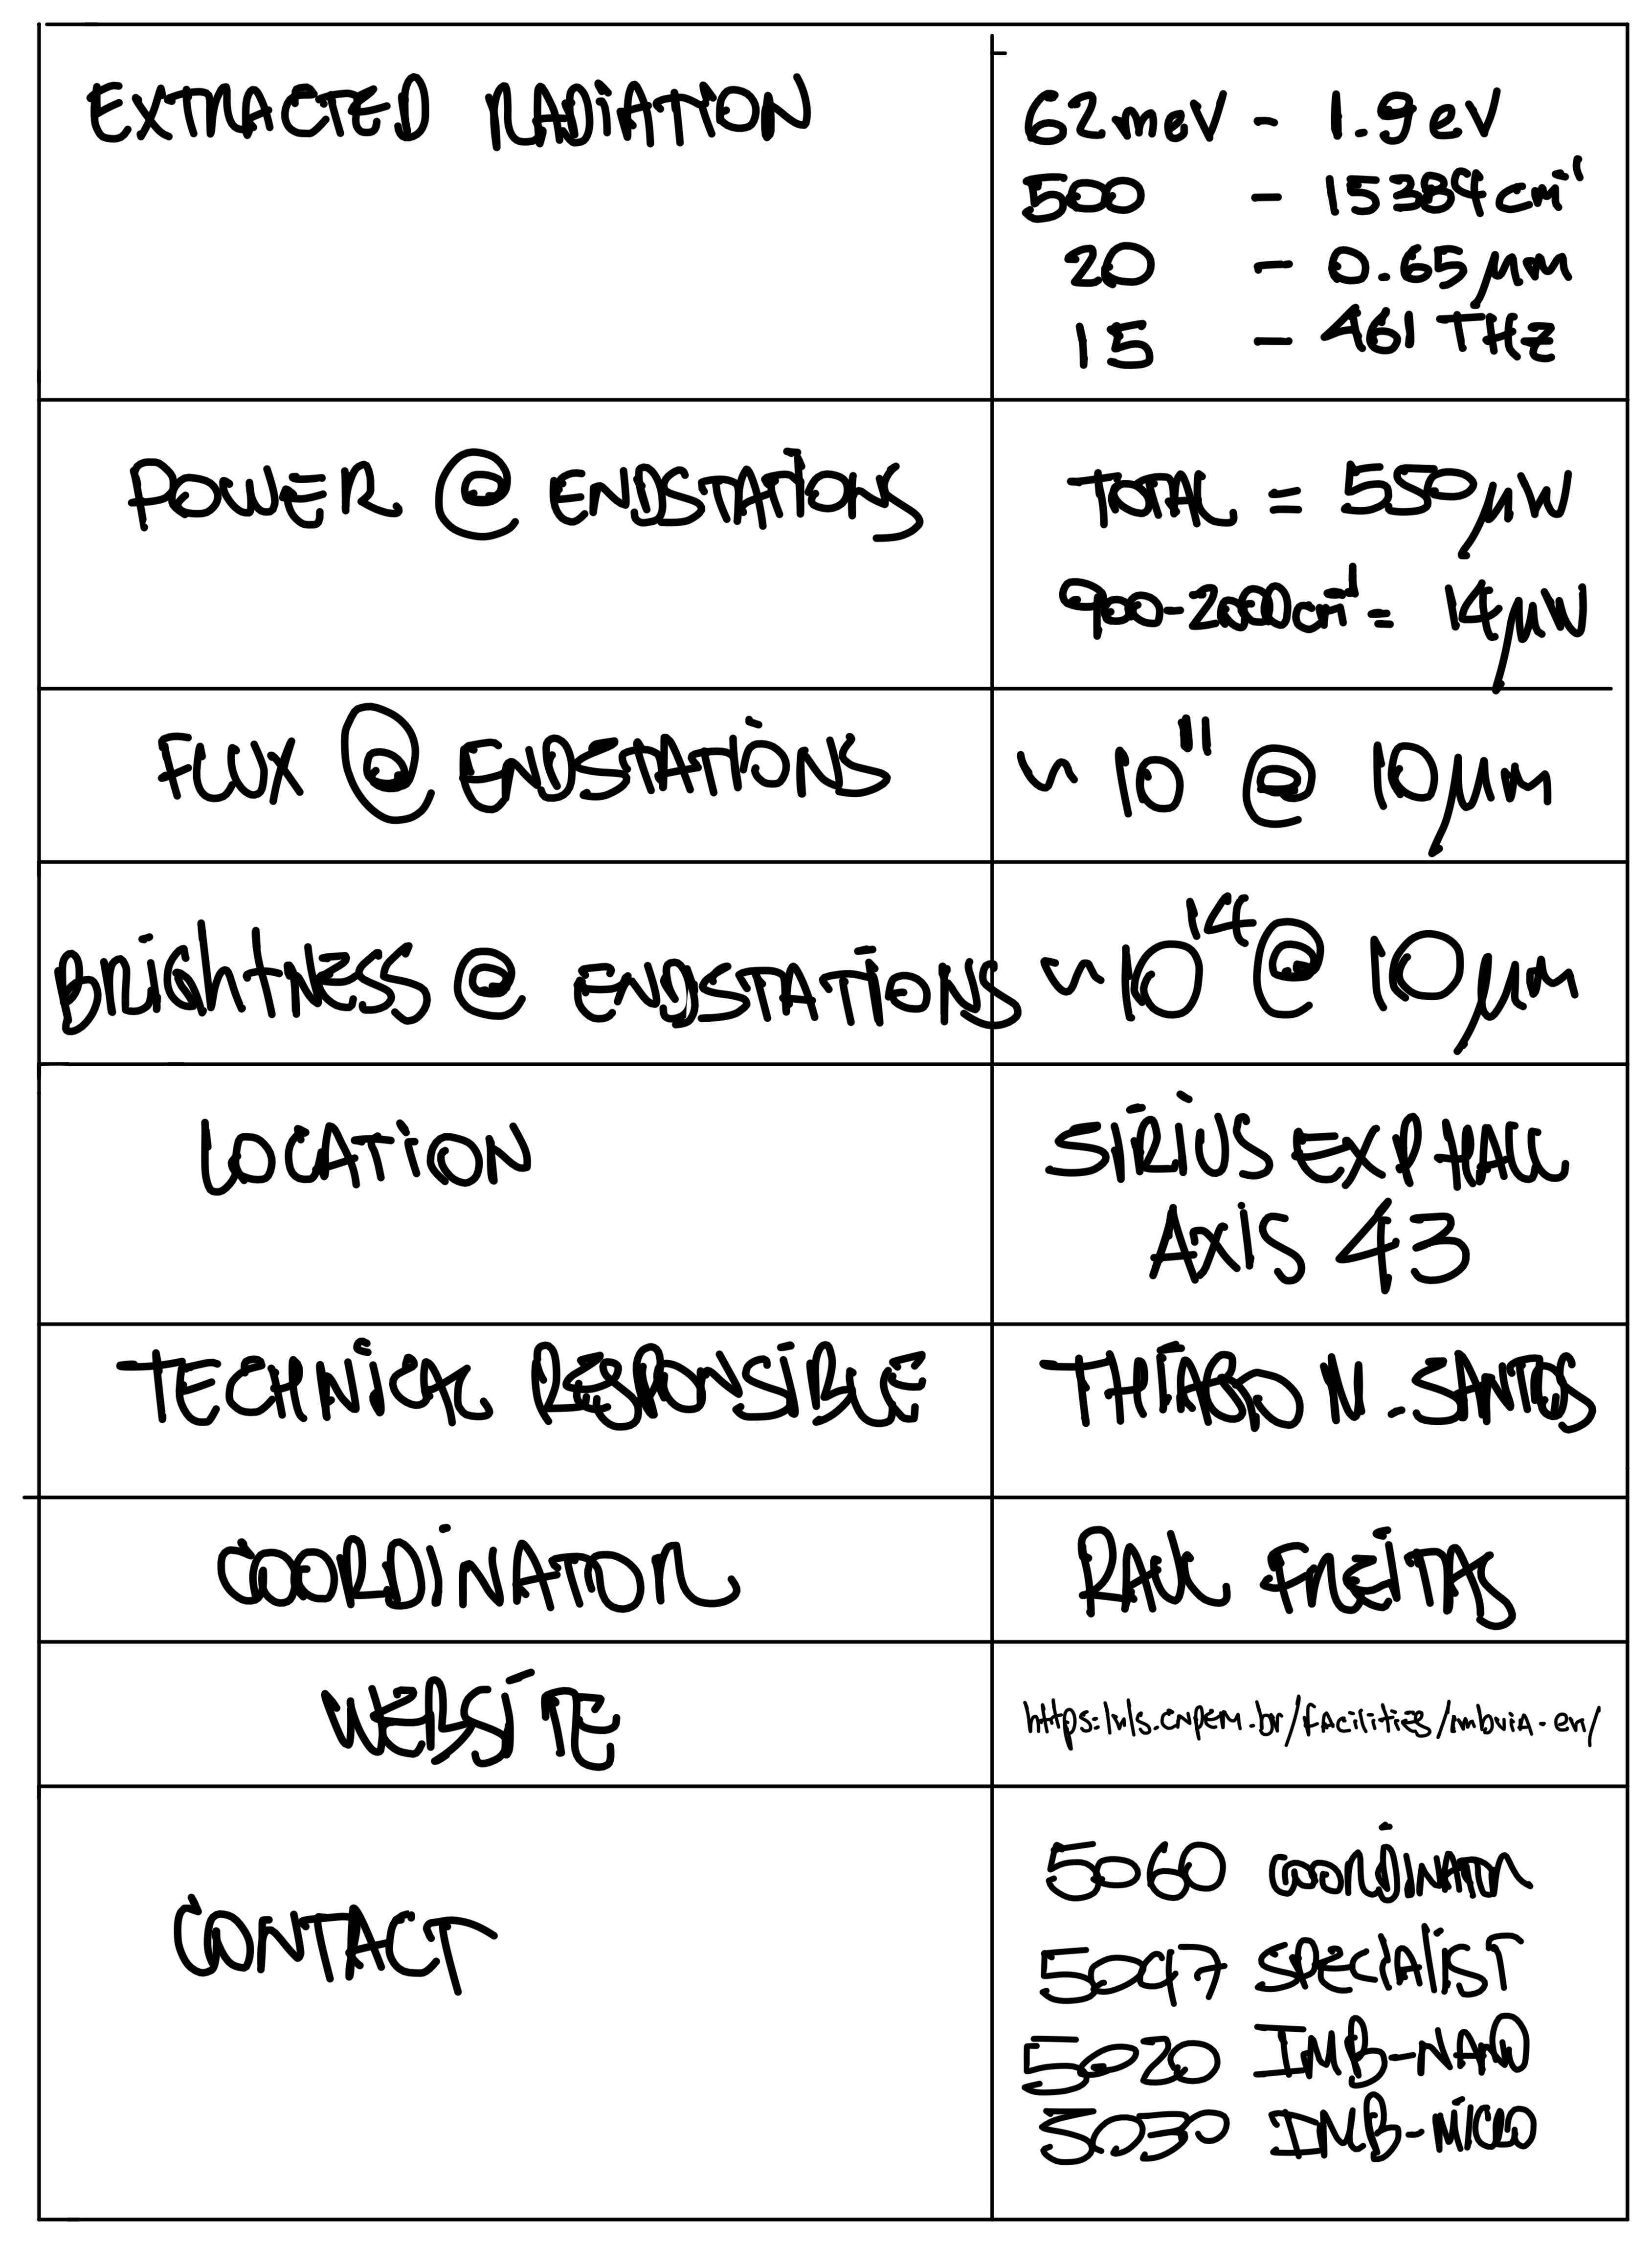 EXTRACTED RADIATION
62meV - 1.9eV
500 - 15384cm⁻¹
20 - 0.65μm
15 - 461 THz
POWER @ ENDSTATIONS
TOTAL = 550μW
900-2000cm⁻¹ = 14μW
FLUX @ ENDSTATIONS
~ 10¹¹ @ 10μm
Brightness @ ENDSTATIONS
~ 10¹⁴ @ 10μm
LOCATION
SIRIUS EXP HALL
AXIS 43
TECHNICAL RESPONSIBLE
THIAGO M. SANTOS
COORDINATOR
RAUL FREITAS
WEBSITE
https:lnls.cnpem.br/facilities/imbuia-en/
CONTACT
5060 coordinator
5047 specialist
5020 IMB-NANO
5030 IMB-MICRO